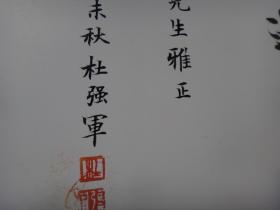 先生雅正
未秋杜强軍